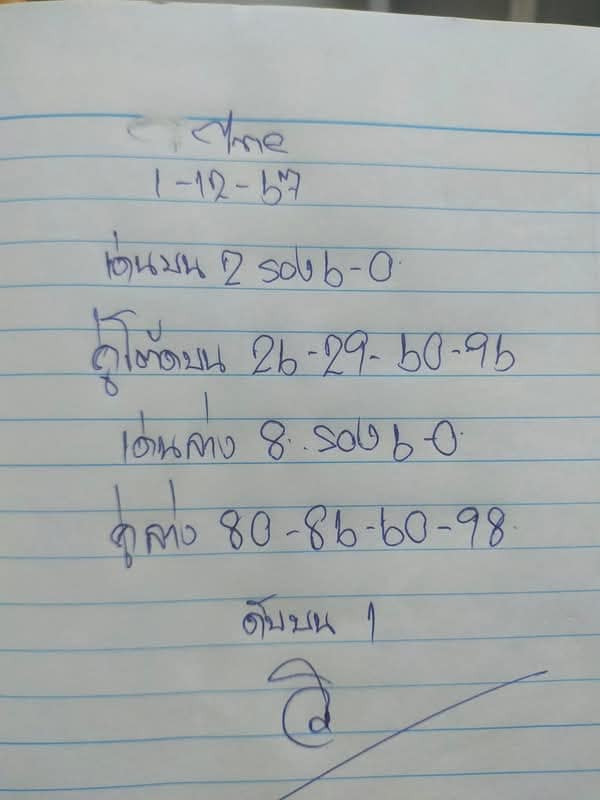 ไทย
1-12-67
เด่นบน 2 รอง 6-0
คู่โต๊ดบน 26-29-60-96
เด่นล่าง 8. รอง 6-0
คู่ล่าง 80-86-60-98
ดับบน 1